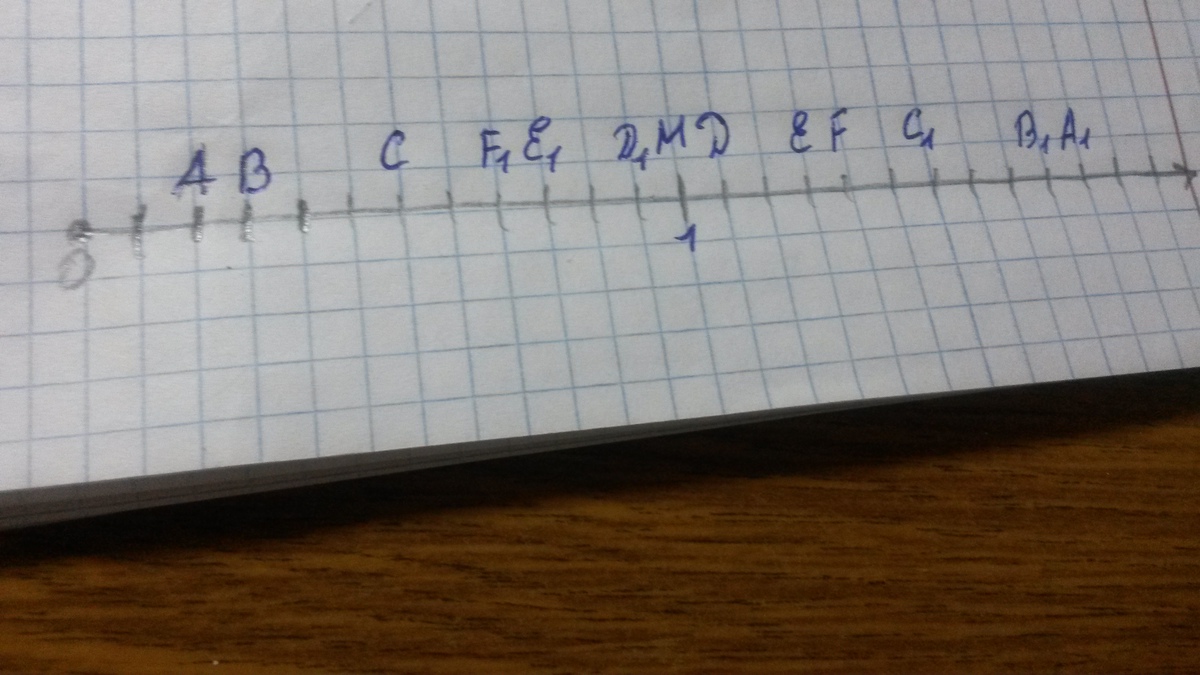 A B C F₁ E₁ D₁ M D E F C₁ B₁ A₁
0 1